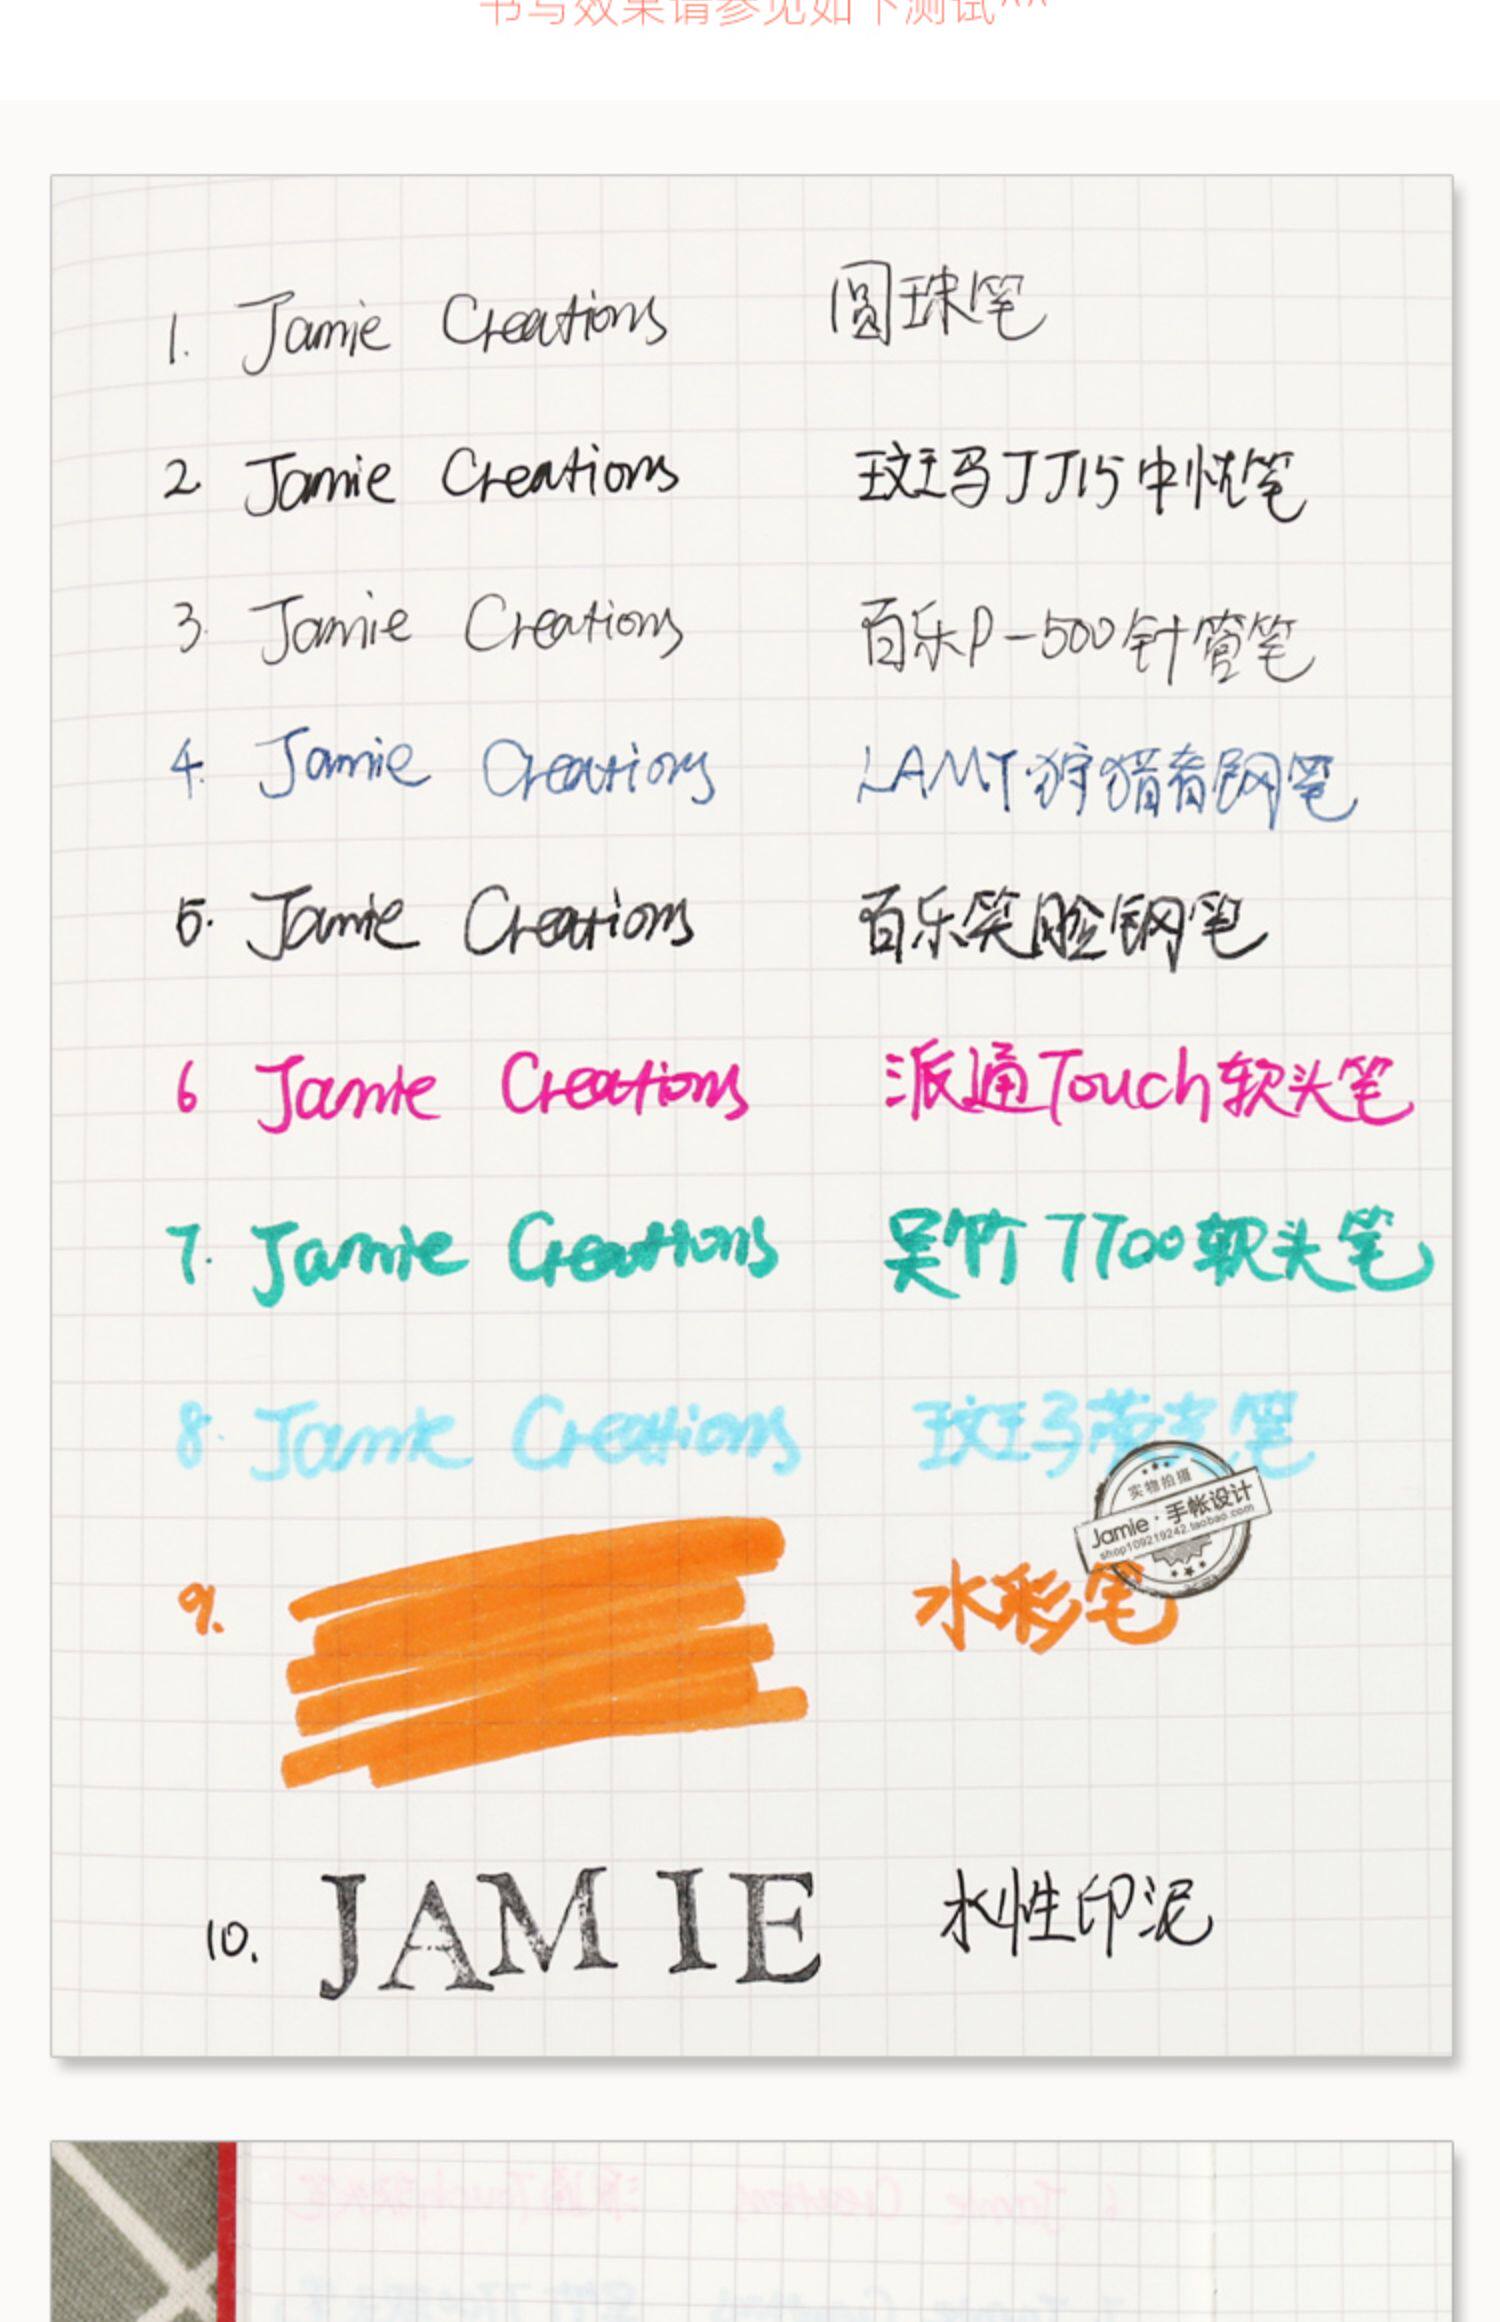 书写效果请参见如下测试^^
1. Jamie Creations 圆珠笔
2 Jamie Creations 斑马JJ15中性笔
3. Jamie Creations 百乐P-500针管笔
4. Jamie Creations LAMY狩猎者钢笔
5. Jamie Creations 百乐笑脸钢笔
6 Jamie Creations 派通Touch软头笔
7. Jamie Creations 吴竹7700软头笔
8. Jamie Creations 斑马荧光笔
实物拍摄
Jamie·手帐设计
shop109219242.taobao.com
9. 水彩笔
10. JAMIE 水性印泥